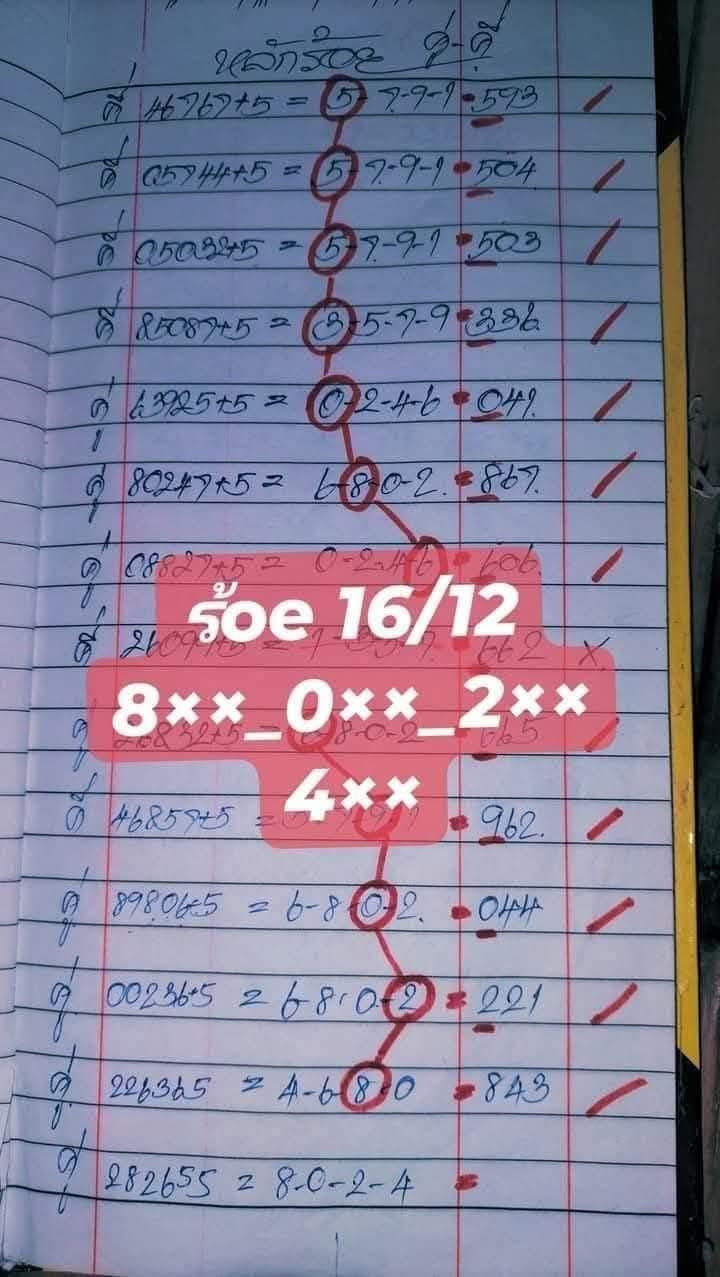 หลักร้อย คู่-คี่
คี่ 46767+5 = 5-7-9-1 593 /
คี่ 05744+5 = 5-7-9-1 504 /
คี่ 05032+5 = 5-7-9-1 503 /
คี่ 85087+5 = 3-5-7-9 336 /
คู่ 63925+5 = 0-2-4-6 041 /
คู่ 80247+5 = 6-8-0-2 867 /
คู่ 08827+5 = 0-2-4-6 606 /
ร้oe 16/12
คี่ 662 ×
8××_0××_2××
คู่ 26832+5 = 6-8-0-2 665 /
4××
คี่ 46857+5 = 962 /
คู่ 89806+5 = 6-8-0-2 044 /
คู่ 00236+5 = 6-8-0-2 = 221 /
คู่ 226365 = 4-6-8-0 843 /
คู่ 282655 = 8-0-2-4 =